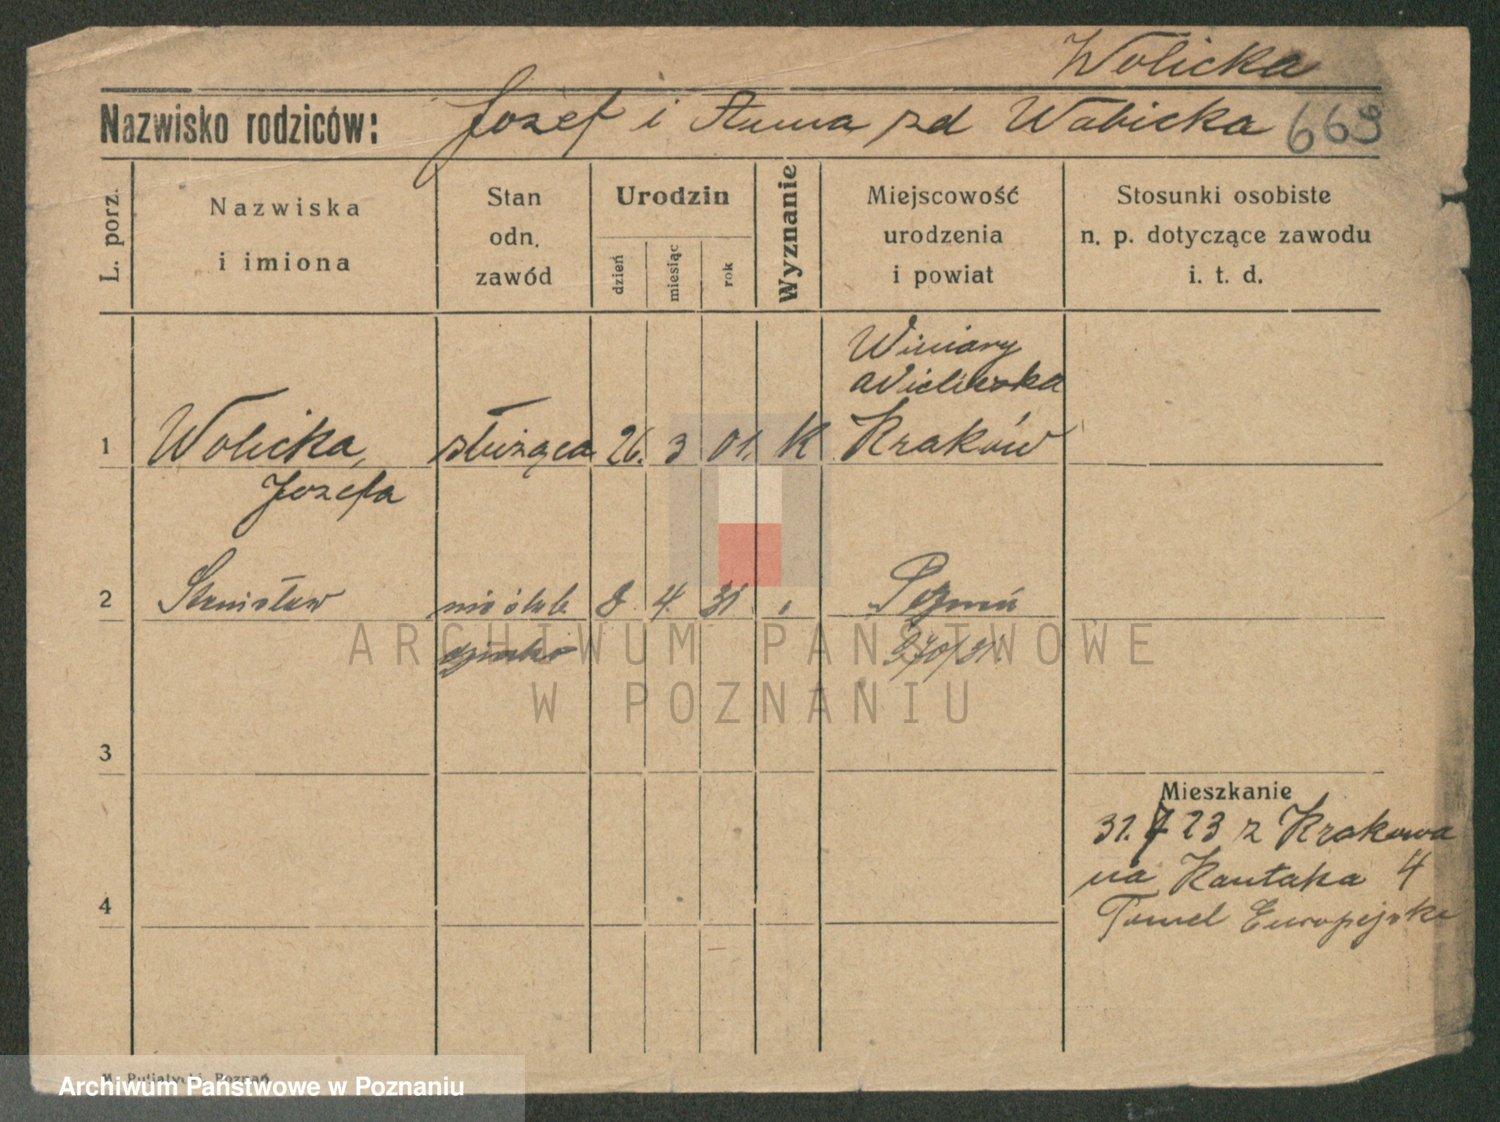 Wolicka
Nazwisko rodziców: Jozef i Anna zd Wabicka 669
L. porz.
Nazwiska
i imiona
Stan
odn.
zawód
Urodzin
dzień
miesiąc
rok
Wyznanie
Miejscowość
urodzenia
i powiat
Stosunki osobiste
n. p. dotyczące zawodu
i. t. d.
Winiary
Wieliczka
1 Wolicka, służąca 26. 3 01. K Kraków
Jozefa
2 Stanisław nieślub 8 4. 31 Poznań
dziecko 270/31.
ARCHIWUM PAŃSTWOWE
W POZNANIU
3
Mieszkanie
31. 7 23 z Krakowa
na Kantaka 4
4
Europejska
Poznań
Archiwum Państwowe w Poznaniu